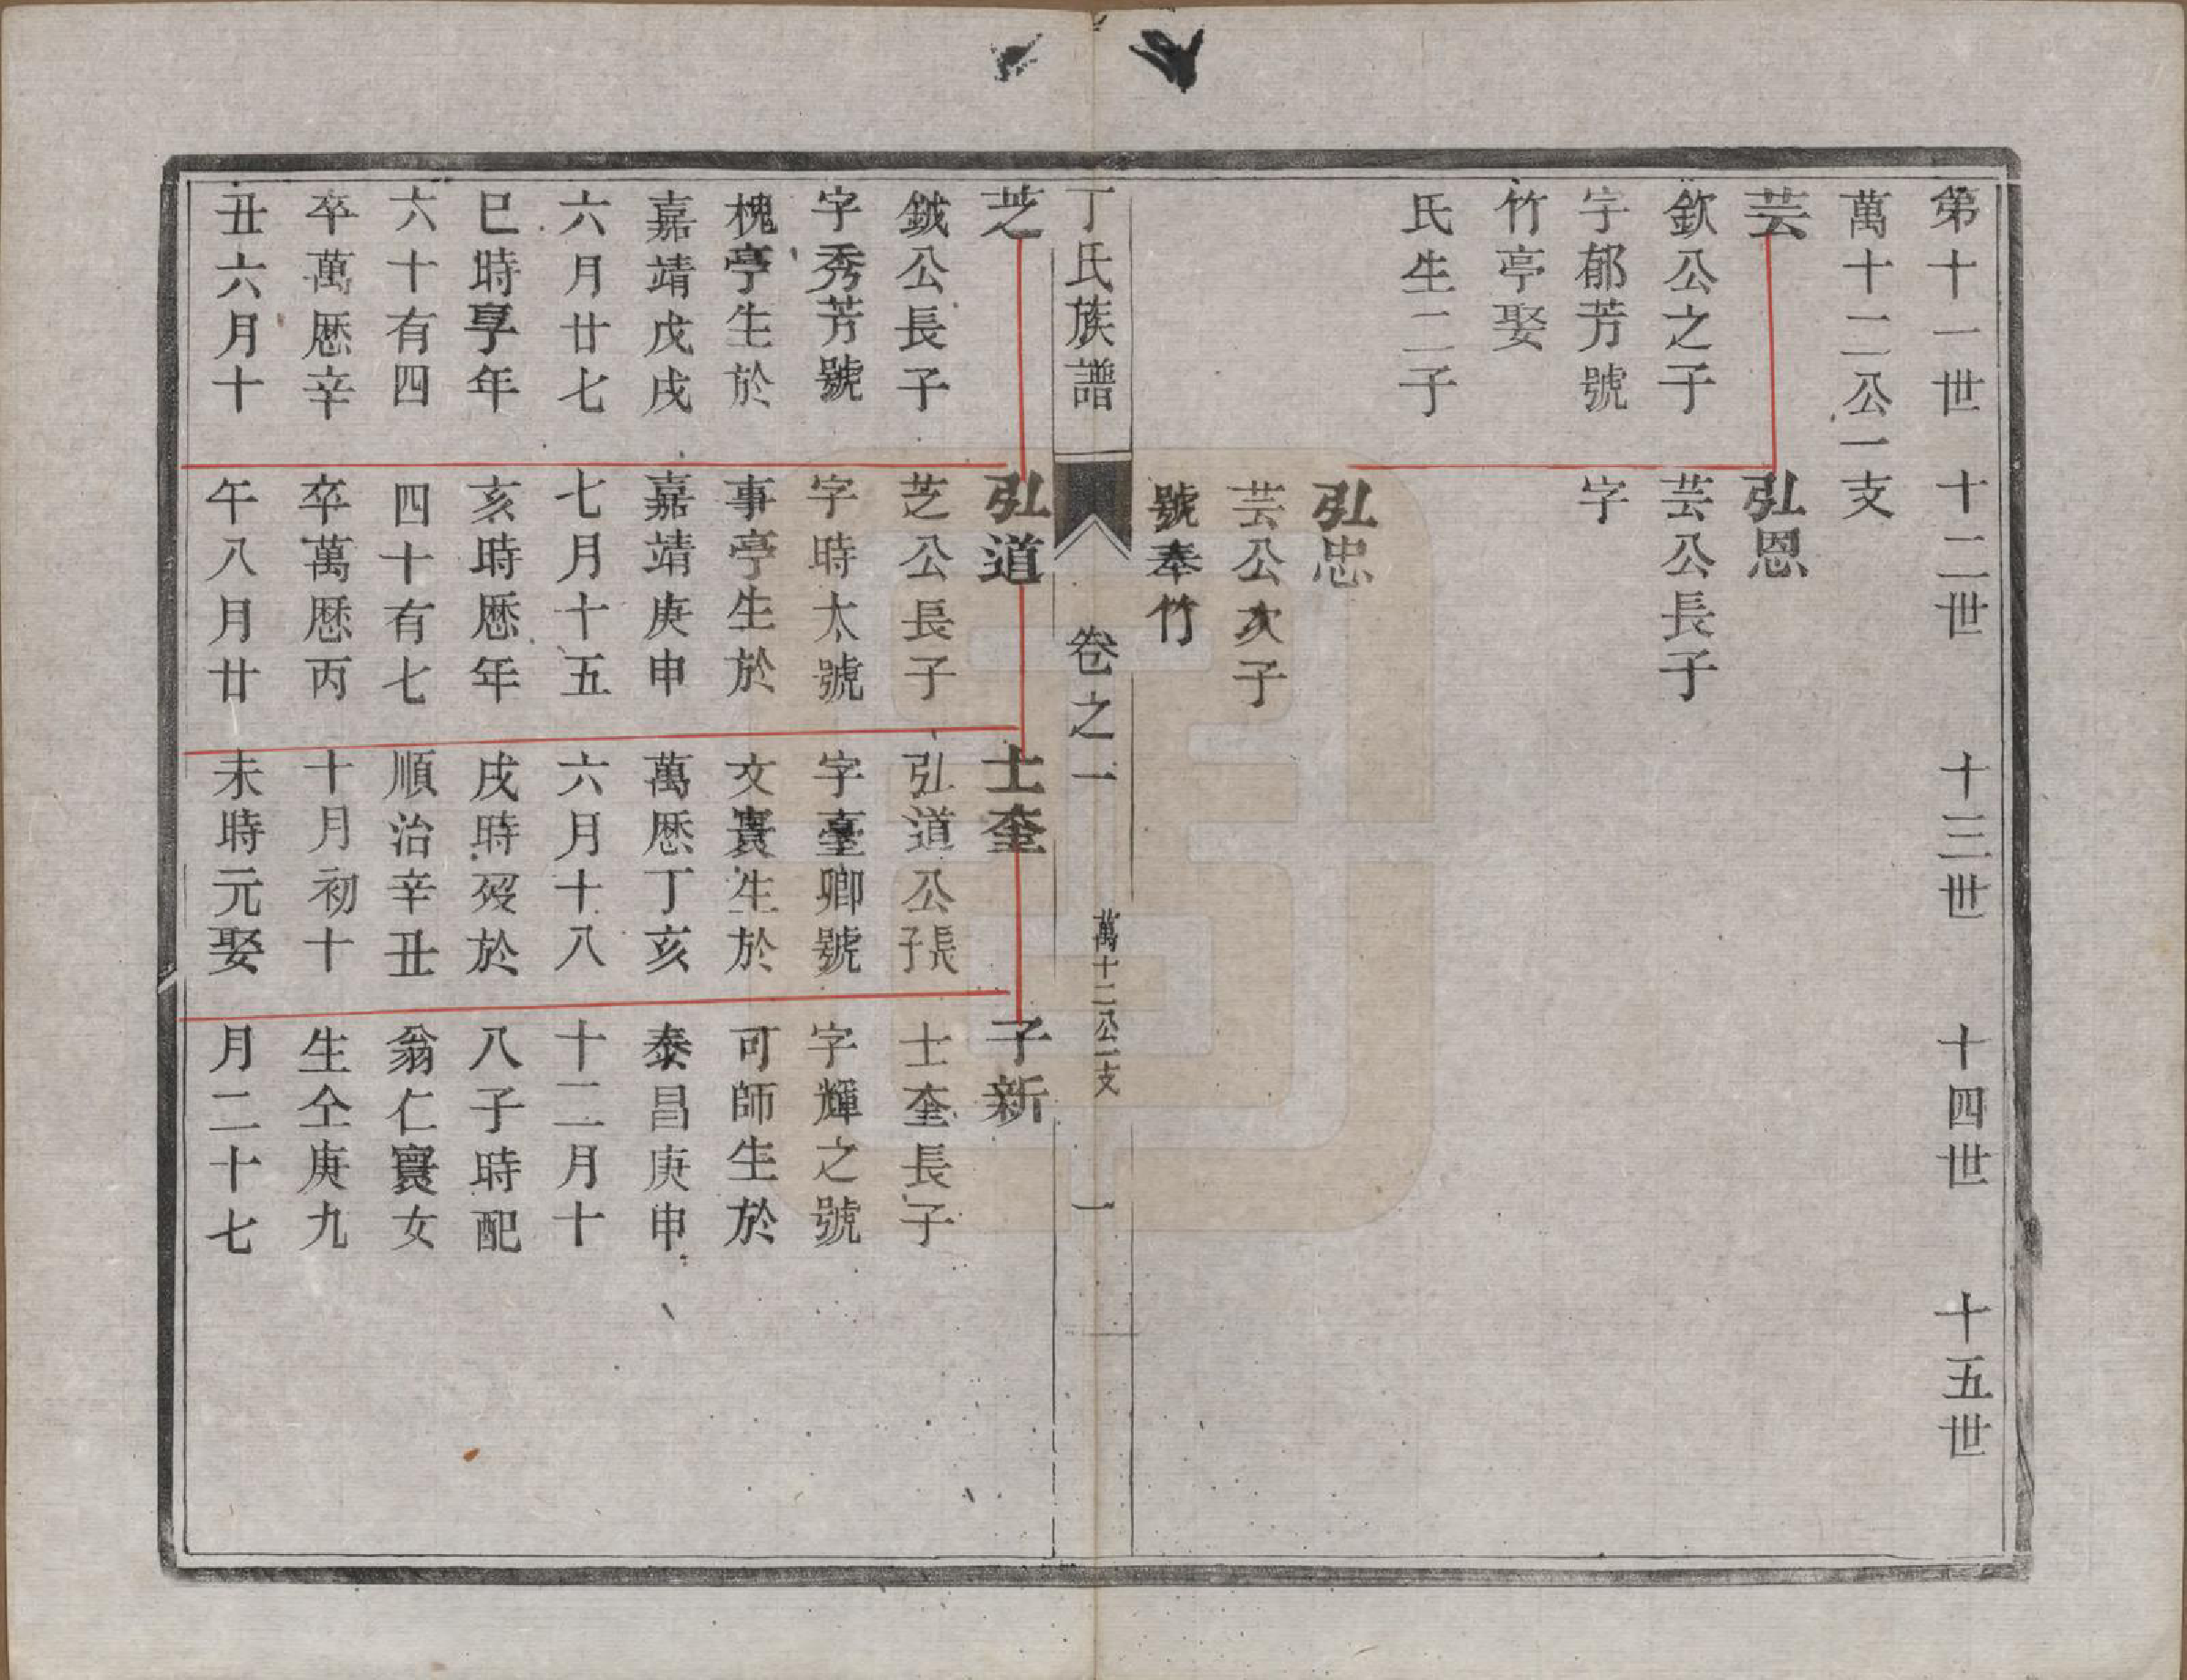 第十一世　十二世　十三世　十四世　十五世
萬十二公一支
芸
欽公之子
字郁芳號
竹亭娶
氏生二子
弘恩
芸公長子
字
弘忠
芸公次子
號奉竹
丁氏族譜　卷之一　萬十二公一支　一
芝
鉞公長子
字秀芳號
槐亭生於
嘉靖戊戌
六月廿七
巳時享年
六十有四
卒萬厯辛
丑六月十
弘道
芝公長子
字時太號
事亭生於
嘉靖庚申
七月十五
亥時厯年
四十有七
卒萬厯丙
午八月廿
士奎
弘道公長子
字臺卿號
文寰生於
萬厯丁亥
六月十八
戌時歿於
順治辛丑
十月初十
未時元娶
子新
士奎長子
字輝之號
可師生於
泰昌庚申
十二月十
八子時配
翁仁寰女
生仝庚九
月二十七